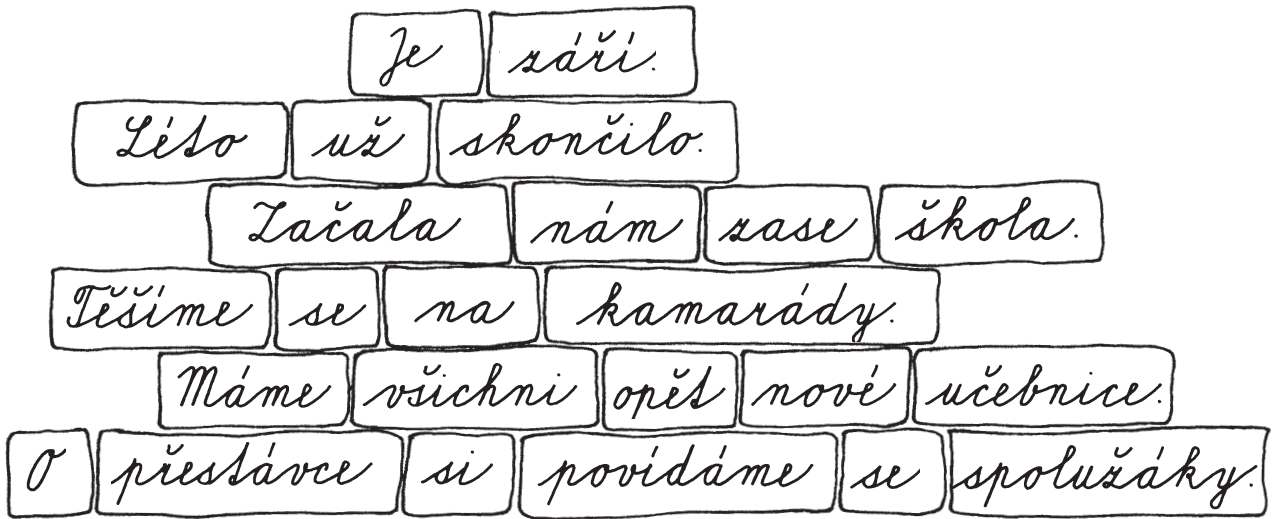 Je září.
Léto už skončilo.
Začala nám zase škola.
Těšíme se na kamarády.
Máme všichni opět nové učebnice.
O přestávce si povídáme se spolužáky.